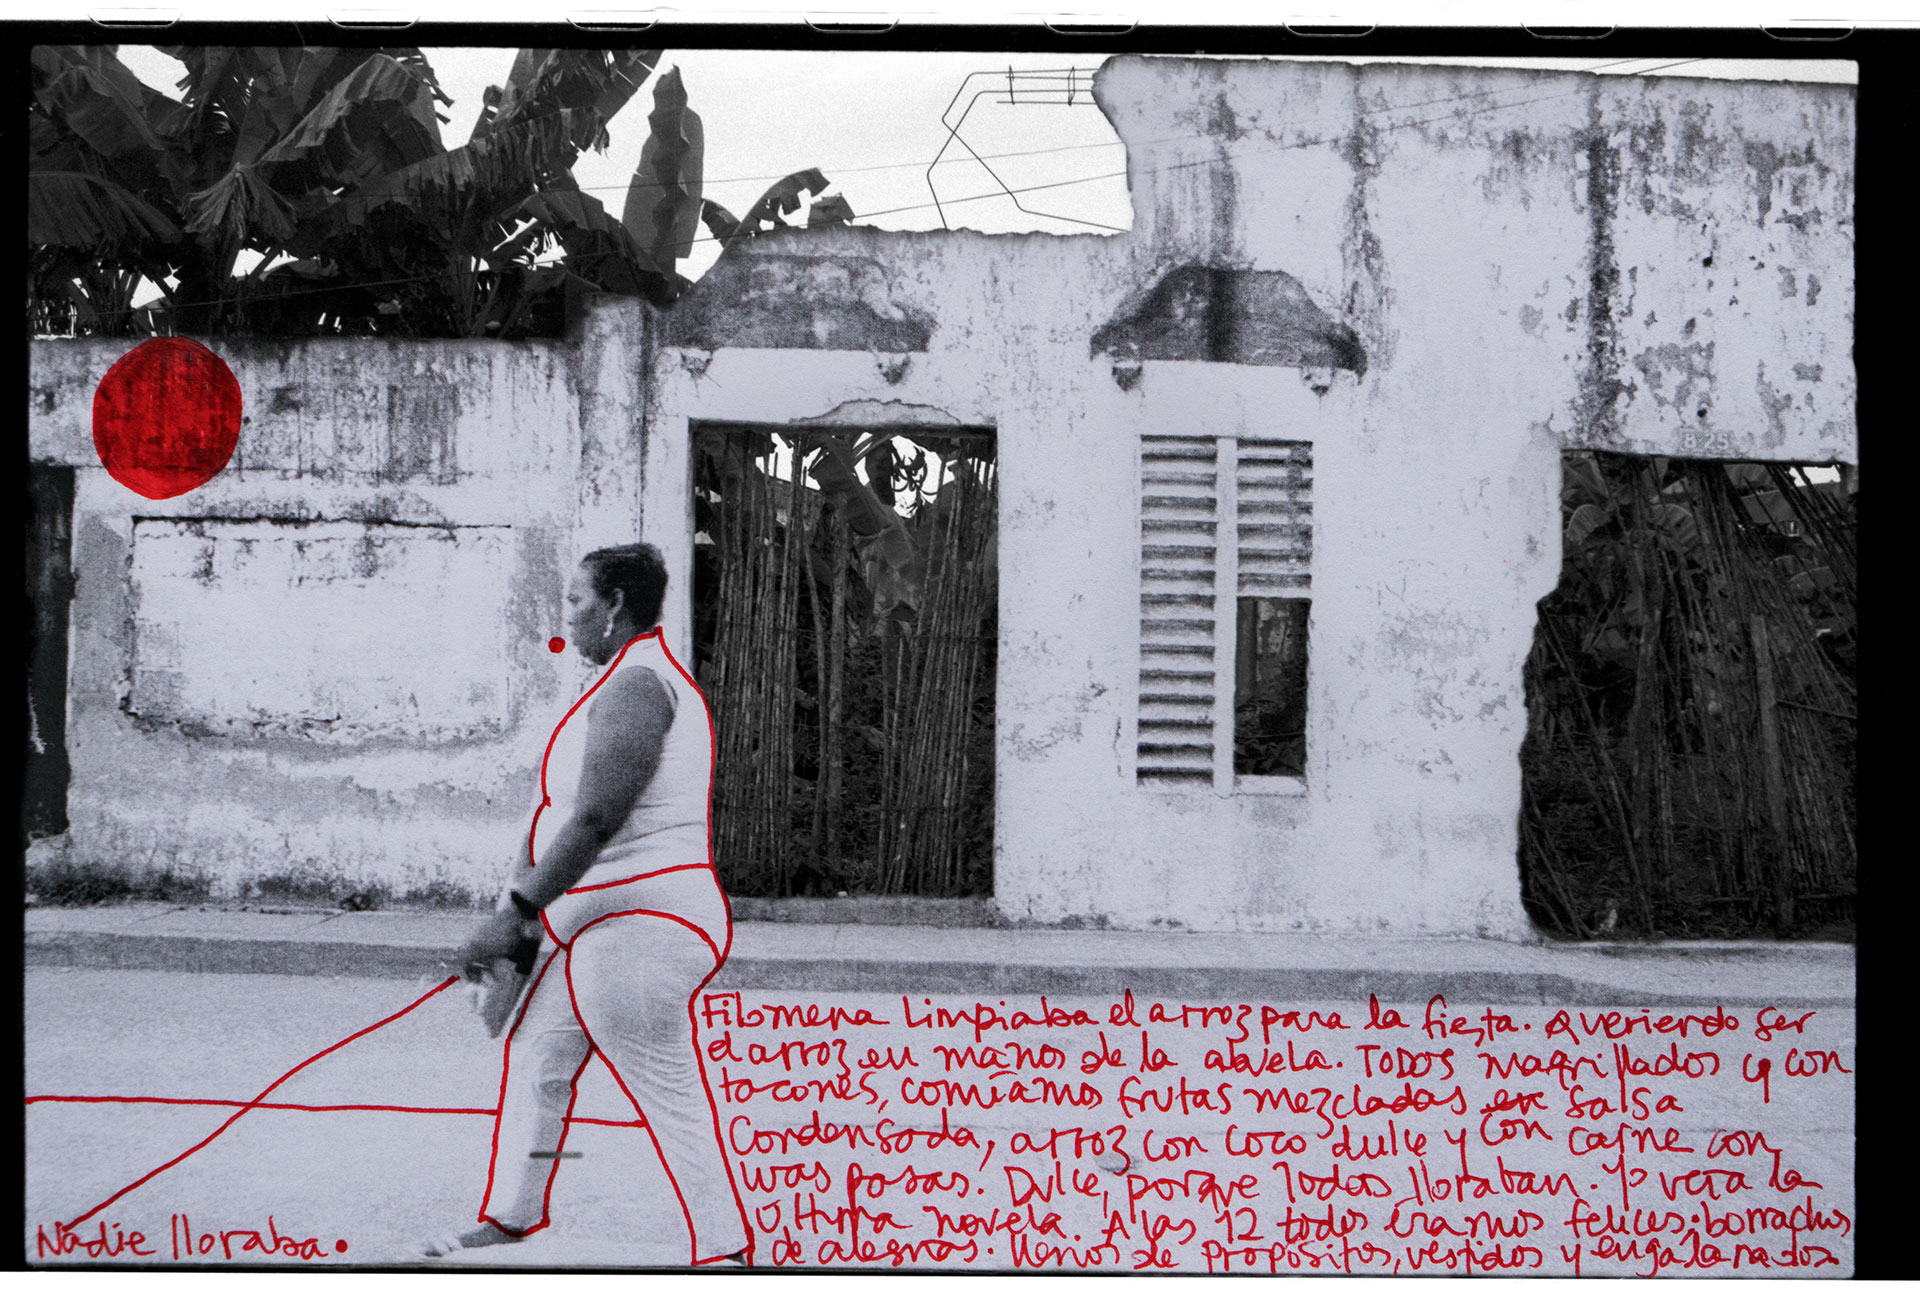 825
Filomena limpiaba el arroz para la fiesta. Queriendo ser
el arroz en manos de la abuela. Todos maquillados y con
tacones, comíamos frutas mezcladas en salsa
condensada, arroz con coco dulce y con carne con
uvas pasas. Dulce, porque todos lloraban. Yo veía la
última novela. A las 12 todos éramos felices. borrachos
de alegrías. llenos de propósitos, vestidos y engalanados
Nadie lloraba.